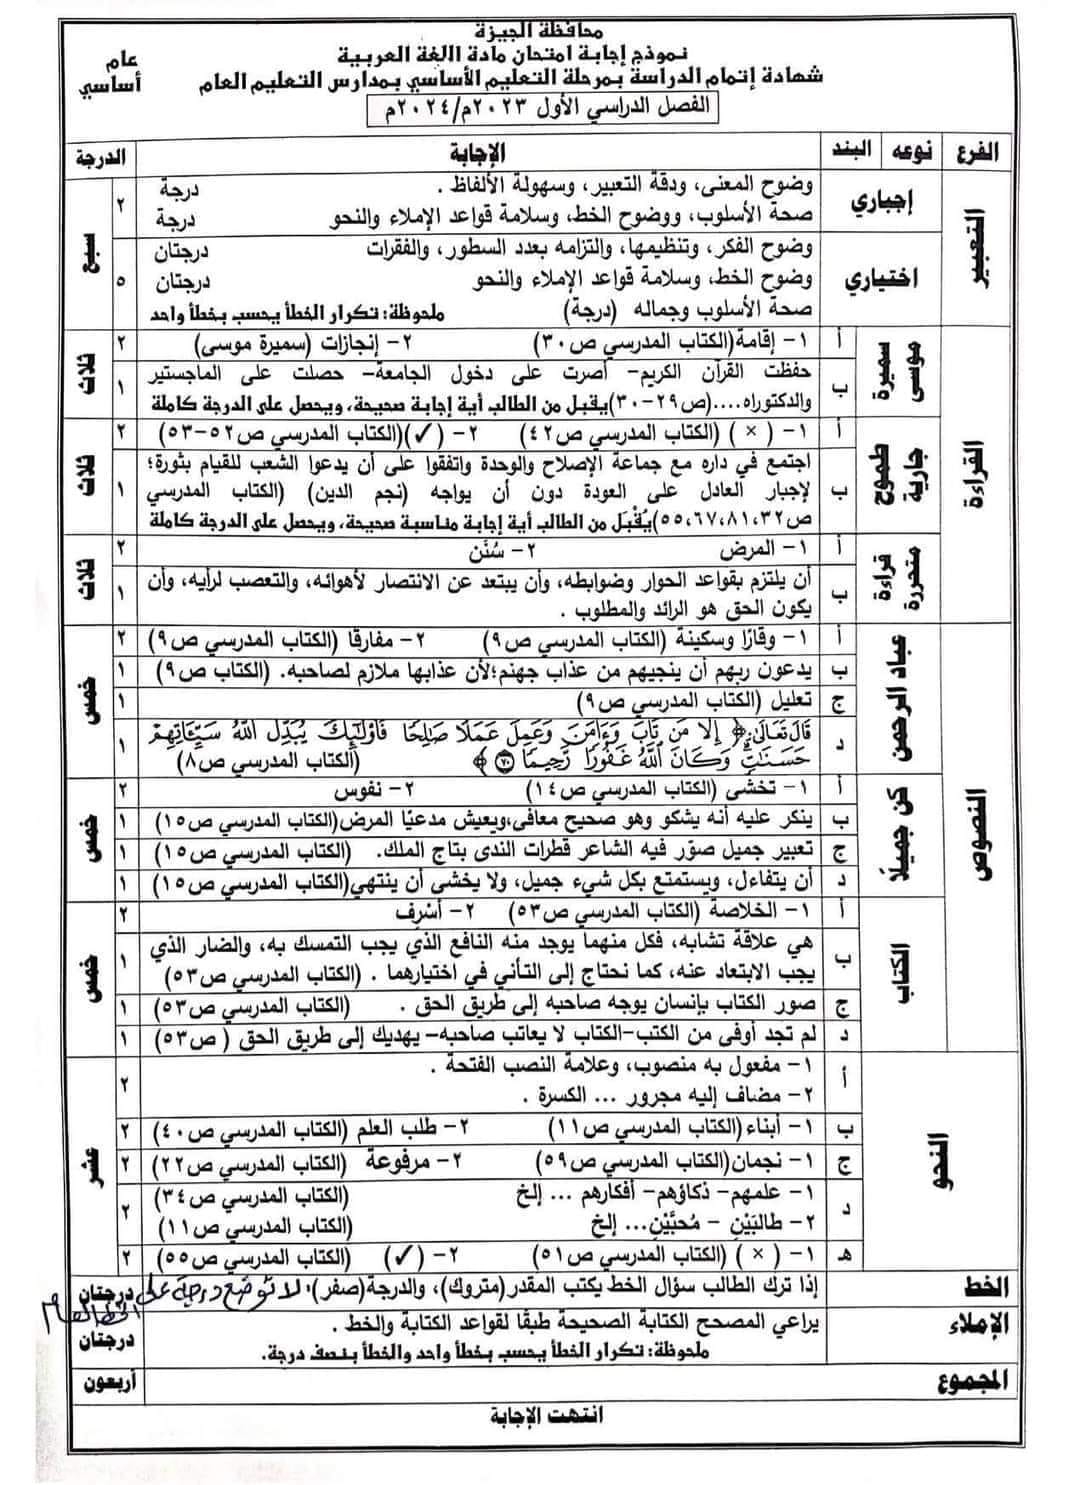 محافظة الجيزة
نموذج إجابة امتحان مادة اللغة العربية
شهادة إتمام الدراسة بمرحلة التعليم الأساسي بمدارس التعليم العام
عام
أساسي
الفصل الدراسي الأول ٢٠٢٣م/٢٠٢٤م
الفرع نوعه البند الإجابة الدرجة
التعبير
إجباري
وضوح المعنى، ودقة التعبير، وسهولة الألفاظ . درجة
صحة الأسلوب، ووضوح الخط، وسلامة قواعد الإملاء والنحو درجة
٢
سبع
اختياري
وضوح الفكر، وتنظيمها، والتزامه بعدد السطور، والفقرات درجتان
وضوح الخط، وسلامة قواعد الإملاء والنحو درجتان
صحة الأسلوب وجماله (درجة) ملحوظة: تكرار الخطأ يحسب بخطأ واحد
٥
القراءة
سميرة موسى
أ ١- إقامة(الكتاب المدرسي ص٣٠) ٢- إنجازات (سميرة موسى) ٢
ب حفظت القرآن الكريم- أصرت على دخول الجامعة- حصلت على الماجستير
والدكتوراه....(ص٢٩-٣٠)يقبل من الطالب أية إجابة صحيحة، ويحصل على الدرجة كاملة ١
ثلاث
طموح جارية
أ ١- (×) (الكتاب المدرسي ص٤٢) ٢- (✓)(الكتاب المدرسي ص٥٢-٥٣) ٢
ب اجتمع في داره مع جماعة الإصلاح والوحدة واتفقوا على أن يدعوا الشعب للقيام بثورة؛
لإجبار العادل على العودة دون أن يواجه (نجم الدين) (الكتاب المدرسي
ص٥٥،٦٧،٨١،٣٢)يُقْبَل من الطالب أية إجابة مناسبة صحيحة، ويحصل على الدرجة كاملة ١
ثلاث
قراءة متحررة
أ ١- المرض ٢- سُنَن ٢
ب أن يلتزم بقواعد الحوار وضوابطه، وأن يبتعد عن الانتصار لأهوائه، والتعصب لرأيه، وأن
يكون الحق هو الرائد والمطلوب . ١
ثلاث
النصوص
عباد الرحمن
أ ١- وقارًا وسكينة (الكتاب المدرسي ص٩) ٢- مفارقا (الكتاب المدرسي ص٩) ٢
ب يدعون ربهم أن ينجيهم من عذاب جهنم؛لأن عذابها ملازم لصاحبه. (الكتاب ص٩) ١
ج تعليل (الكتاب المدرسي ص٩) ١
د قَالَ تَعَالَى: ﴿ إِلَّا مَن تَابَ وَءَامَنَ وَعَمِلَ عَمَلًا صَٰلِحًا فَأُوْلَٰٓئِكَ يُبَدِّلُ ٱللَّهُ سَيِّـَٔاتِهِمْ
حَسَنَٰتٍ وَكَانَ ٱللَّهُ غَفُورًا رَّحِيمًا ٧٠ ﴾ (الكتاب المدرسي ص٨) ١
خمس
كن جميلًا
أ ١- تخشى (الكتاب المدرسي ص١٤) ٢- نفوس ٢
ب ينكر عليه أنه يشكو وهو صحيح معافى،ويعيش مدعيًا المرض(الكتاب المدرسي ص١٥) ١
ج تعبير جميل صوّر فيه الشاعر قطرات الندى بتاج الملك. (الكتاب المدرسي ص١٥) ١
د أن يتفاءل، ويستمتع بكل شيء جميل، ولا يخشى أن ينتهي(الكتاب المدرسي ص١٥) ١
خمس
الكتاب
أ ١- الخلاصة (الكتاب المدرسي ص٥٣) ٢- أسْرِف ٢
ب هي علاقة تشابه، فكل منهما يوجد منه النافع الذي يجب التمسك به، والضار الذي
يجب الابتعاد عنه، كما نحتاج إلى التأني في اختيارهما . (الكتاب المدرسي ص٥٣) ١
ج صور الكتاب بإنسان يوجه صاحبه إلى طريق الحق . (الكتاب المدرسي ص٥٣) ١
د لم تجد أوفى من الكتب-الكتاب لا يعاتب صاحبه- يهديك إلى طريق الحق ( ص٥٣) ١
خمس
النحو
أ ١- مفعول به منصوب، وعلامة النصب الفتحة .
٢- مضاف إليه مجرور ... الكسرة . ٢
ب ١- أبناء(الكتاب المدرسي ص١١) ٢- طلب العلم (الكتاب المدرسي ص٤٠) ٢
ج ١- نجمان(الكتاب المدرسي ص٥٩) ٢- مرفوعة (الكتاب المدرسي ص٢٢) ٢
د ١- علمهم- ذكاؤهم- أفكارهم ... إلخ (الكتاب المدرسي ص٣٤)
٢- طالبَيْنِ - مُحبَّيْنِ... إلخ (الكتاب المدرسي ص١١) ٢
هـ ١- (×) (الكتاب المدرسي ص٥١) ٢- (✓) (الكتاب المدرسي ص٥٥) ٢
عشر
الخط إذا ترك الطالب سؤال الخط يكتب المقدر(متروك)، والدرجة(صفر)؛ لا توضع درجة على الخط العام درجتان
الإملاء يراعي المصحح الكتابة الصحيحة طبقًا لقواعد الكتابة والخط .
ملحوظة: تكرار الخطأ يحسب بخطأ واحد والخطأ بنصف درجة. درجتان
المجموع أربعون
انتهت الإجابة